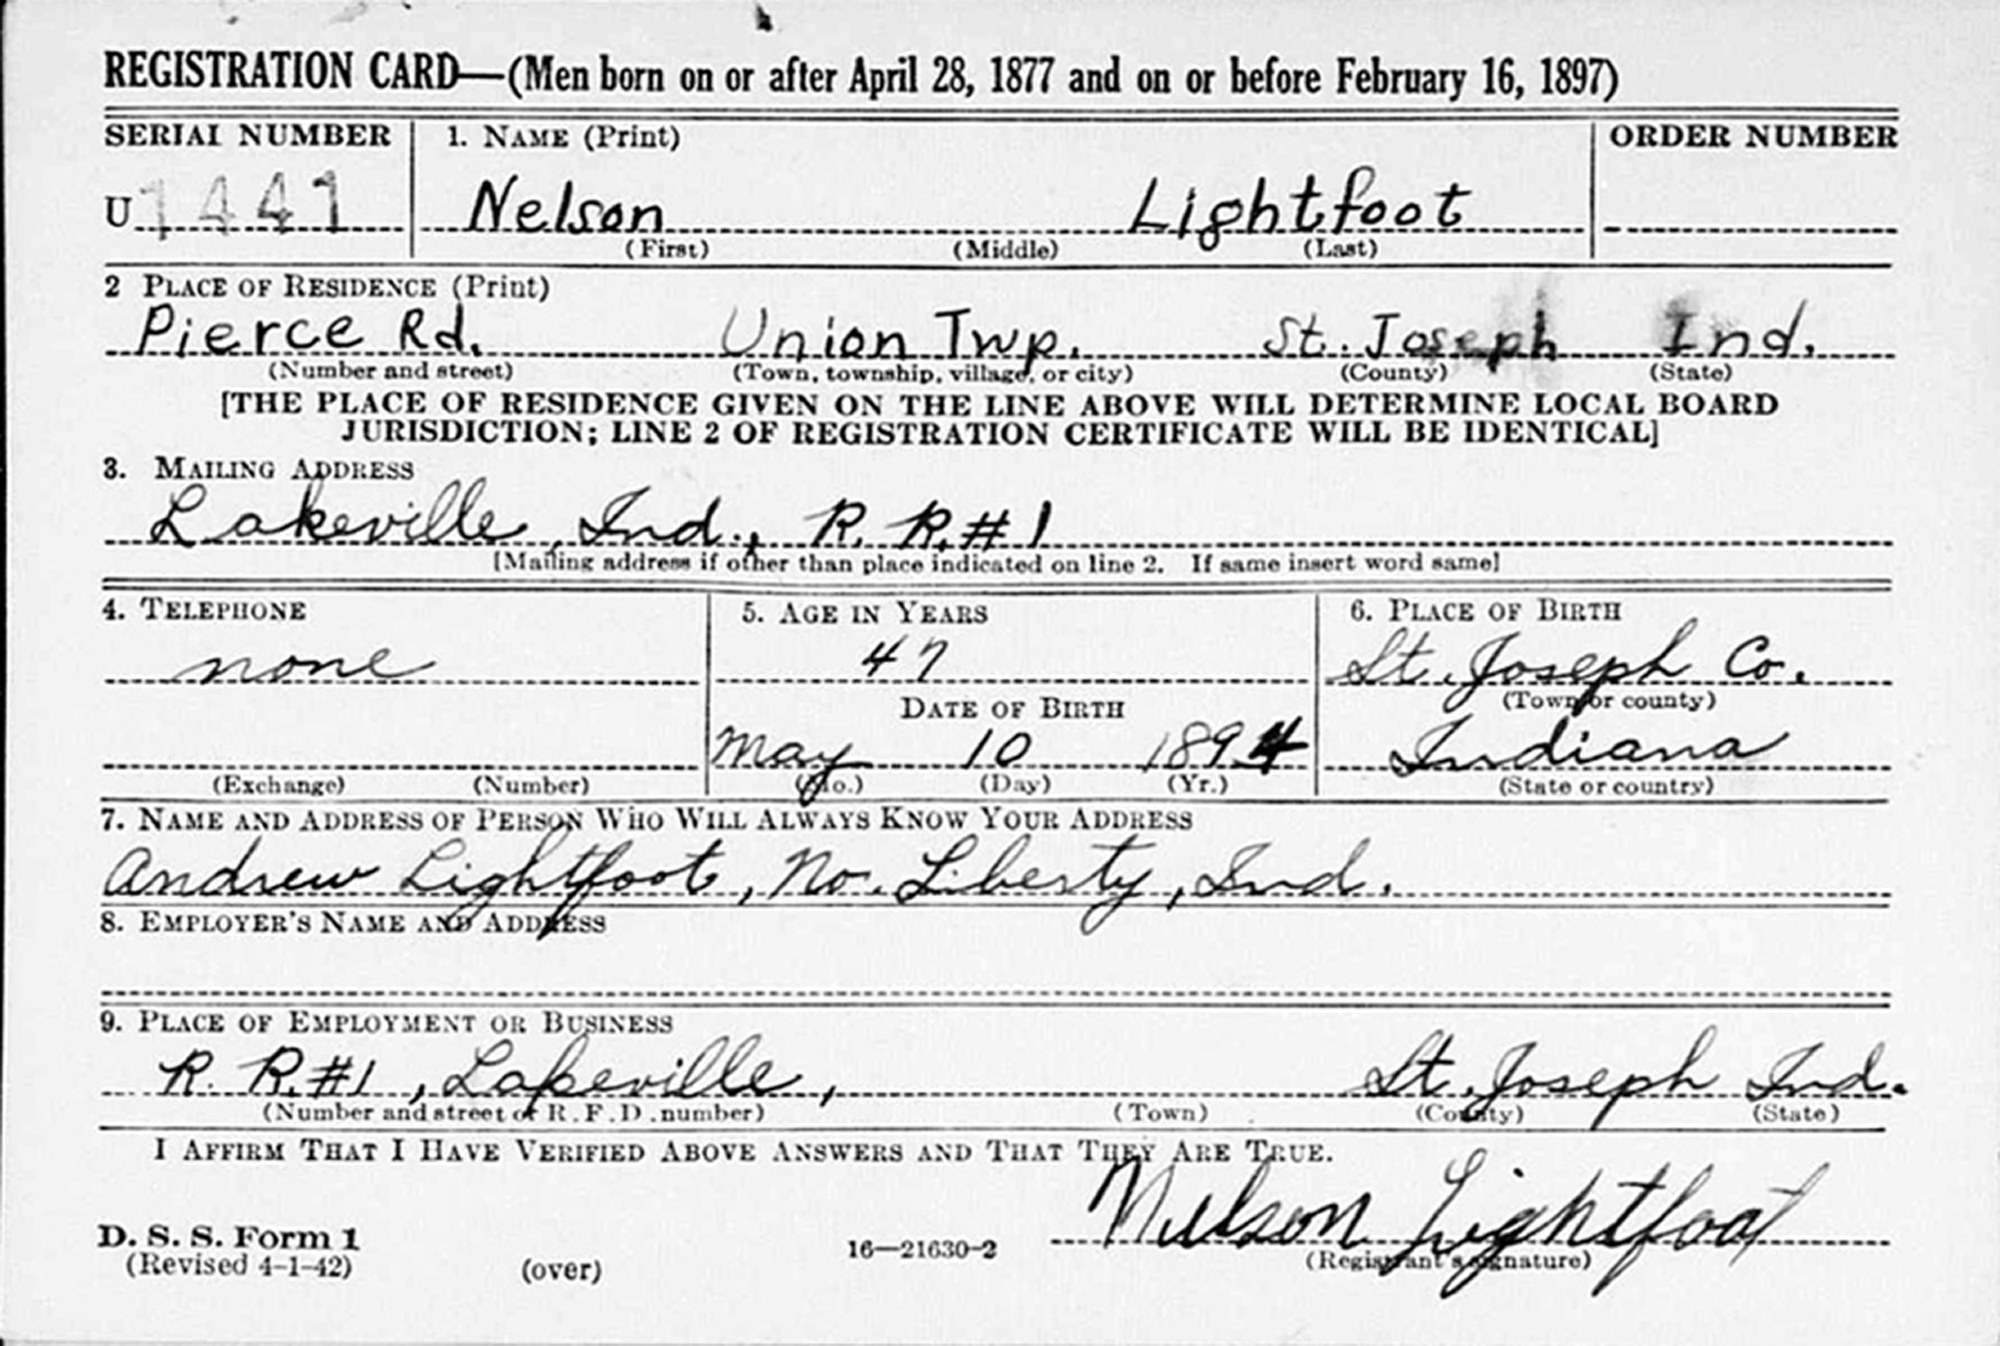 REGISTRATION CARD—(Men born on or after April 28, 1877 and on or before February 16, 1897)
SERIAL NUMBER 1. NAME (Print) ORDER NUMBER
U 1441 Nelson Lightfoot
(First) (Middle) (Last)
2 PLACE OF RESIDENCE (Print)
Pierce Rd. Union Twp. St. Joseph Ind.
(Number and street) (Town, township, village, or city) (County) (State)
[THE PLACE OF RESIDENCE GIVEN ON THE LINE ABOVE WILL DETERMINE LOCAL BOARD
JURISDICTION; LINE 2 OF REGISTRATION CERTIFICATE WILL BE IDENTICAL]
3. MAILING ADDRESS
Lakeville, Ind., R. R. #1
[Mailing address if other than place indicated on line 2. If same insert word same]
4. TELEPHONE 5. AGE IN YEARS 6. PLACE OF BIRTH
none 47 St. Joseph Co.
DATE OF BIRTH (Town or county)
May 10 1894 Indiana
(Exchange) (Number) (Mo.) (Day) (Yr.) (State or country)
7. NAME AND ADDRESS OF PERSON WHO WILL ALWAYS KNOW YOUR ADDRESS
Andrew Lightfoot, No. Liberty, Ind.
8. EMPLOYER'S NAME AND ADDRESS
9. PLACE OF EMPLOYMENT OR BUSINESS
R. R. #1, Lakeville, St. Joseph Ind.
(Number and street or R. F. D. number) (Town) (County) (State)
I AFFIRM THAT I HAVE VERIFIED ABOVE ANSWERS AND THAT THEY ARE TRUE.
Nelson Lightfoot
D. S. S. Form 1
(Revised 4-1-42) (over) 16—21630-2 (Registrant's signature)